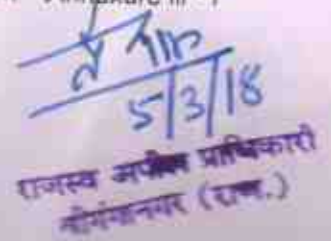 5/3/18
राजस्व अपील प्राधिकारी
श्रीगंगानगर (राज.)